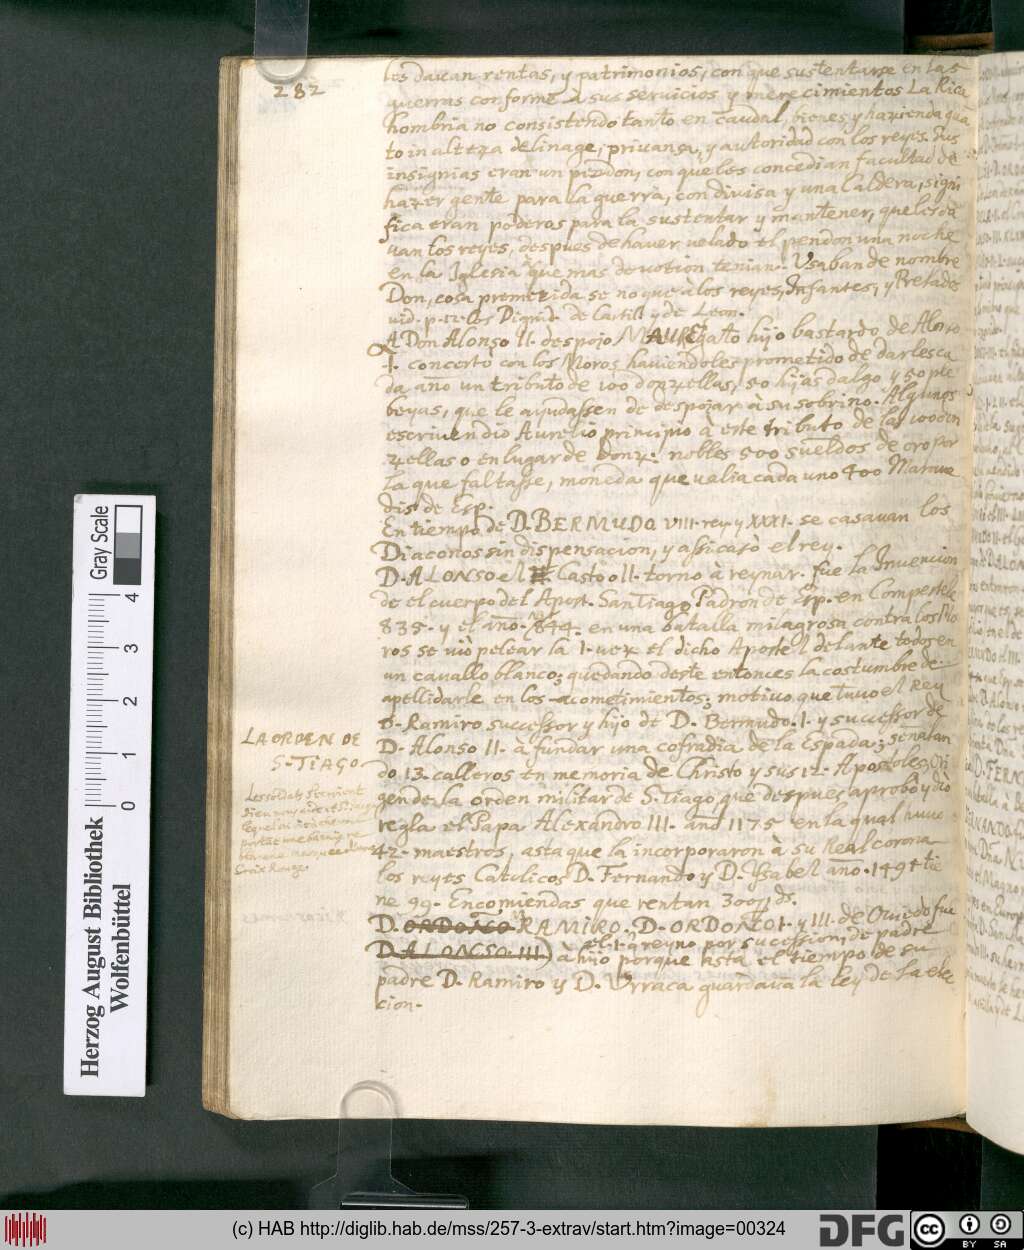 282
les dauan rentas, y patrimonios, con que sustentarse en las
guerras conforme à sus seruicios y merecimientos La Rica
hombria no consistendo tanto en caudal, bienes y hazienda qua
to in alteza de linage, priuansa, y autoridad con los reyes. Sus
insignias eran un pendon, con que les concedian facultad de
hazer gente para la guerra, con diuisa y una Caldera, signi
fica eran poderos para la sustentar y mantener, que les da
uan los reyes, despues de hauer velado el pendon una noche
en la Iglesia que mas deuotion tenian. Vsaban de nombre
Don, cosa premetida se no que à los reyes, Infantes, y Prelados
uid. p. 12. los Dignid. de Castill y de Leon.
A Don Alonso II. despojo MAUREgato hijo bastardo de Alonso
I. concertò con los Moros hauiendoles prometido de darles ca
da año un tributo de 100 donzellas, 50 hijas dalgo y 50 ple
beyas, que le ayudassen de despojar à su sobrino. Algunos
escriuen dio Aurelio principio à este tributo de las 100 don
zellas o en lugar de Donz: nobles 500 sueldos de oro por
la que faltasse, moneda que valia cada uno 400 Maraue
dis de Esp.
En tiempo de D. BERMUDO VIII. rey y XXXI. se casauan los
Diaconos sin dispensacion, y assi casò el rey.
D. ALONSO el Casto o II. torno à reynar. fue la Inuencion
de el cuerpo del Apost. San Tiago Padron de Esp. en Compostela
835. y el año. 844. en una batalla milagrosa contra los Mo
ros se uiò pelear la 1. vez el dicho Apostel delante todos en
un cauallo blanco; quedando deste entonces la costumbre de
apellidarle en los acometimientos; motiuo que tuuo el Rey
D. Ramiro successor y hijo de D. Bermudo. I. y successor de
D. Alonso II. à fundar una cofradia de la Espada; señalan
do 13. calleros en memoria de Christo y sus 12. Apostoles; Ori
gen de la orden militar de S. Tiago, que despues aprobò y diò
regla el Papa Alexandro III. año 1175 en la qual huuo
42. maestros, asta que la incorporaron à su Real corona
los reyes Catolicos D. Fernando y D. Ysabel año. 1494 tie
ne 99. Encomiendas que rentan 300 ds.
D. ORDOÑO RAMIRO., D. ORDOÑO I. y III. de Ouiedo fue
D ALONSO III) el 1. q reyno por sucession, de padre
à hijo porque asta el tiempo de su
padre D. Ramiro y D. Vrraca guardaua la ley de la elec
cion.
LA ORDEN DE
S. TIAGO
Croix Rouge
Herzog August Bibliothek
Wolfenbüttel
Gray Scale
0 1 2 3 4
(c) HAB http://diglib.hab.de/mss/257-3-extrav/start.htm?image=00324
DFG
cc BY SA